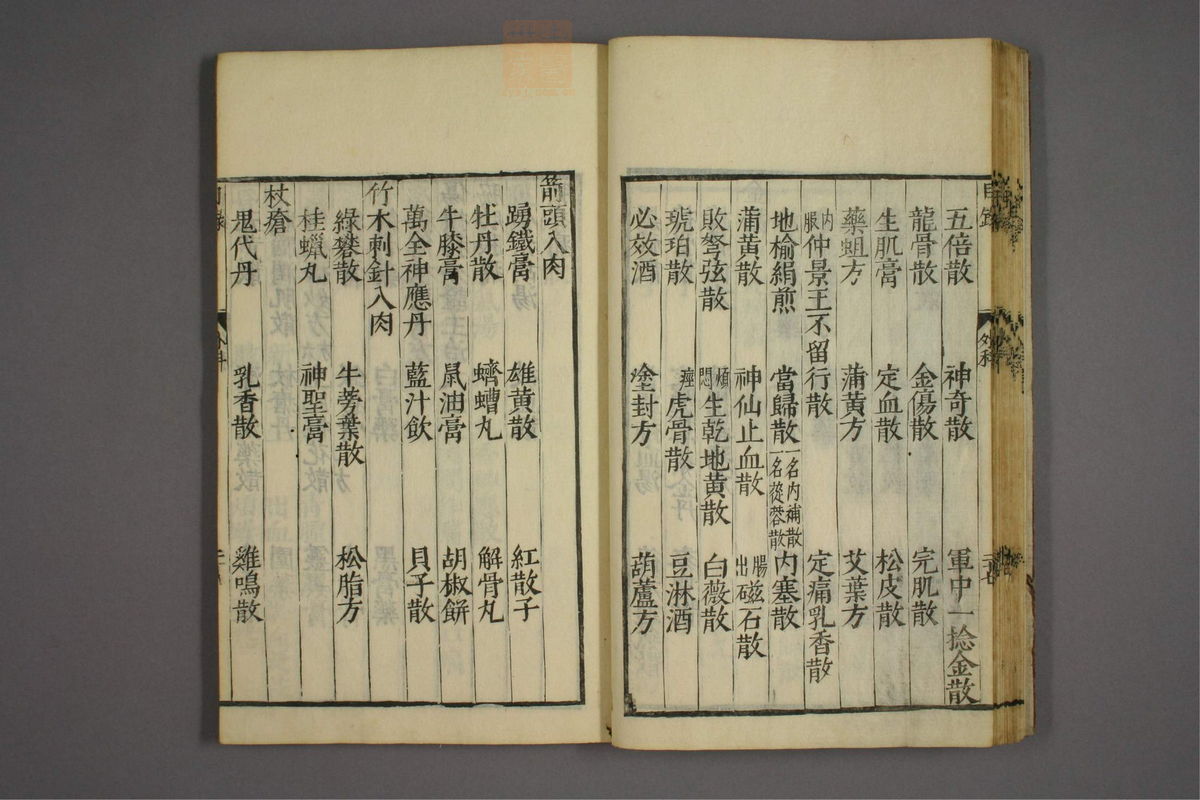 五倍散 神奇散 軍中一捻金散
龍骨散 金傷散 完肌散
生肌膏 定血散 松皮散
藥蛆方 蒲黄方 艾葉方
内服仲景王不留行散 定痛乳香散
地榆絹煎 當歸散一名内補散一名蓯蓉散 内塞散
蒲黄散 神仙止血散 腸出磁石散
敗弩弦散 煩悶生乾地黄散 白薇散
琥珀散 痙虎骨散 豆淋酒
必效酒 塗封方 葫蘆方
目錄 外科
箭頭入肉
踴鐵膏 雄黄散 紅散子
牡丹散 蠐螬丸 解骨丸
牛膝膏 鼠油膏 胡椒餅
萬全神應丹 藍汁飲 貝子散
竹木刺針入肉
綠礬散 牛蒡葉散 松脂方
桂蠟丸 神聖膏
杖瘡
鬼代丹 乳香散 雞鳴散